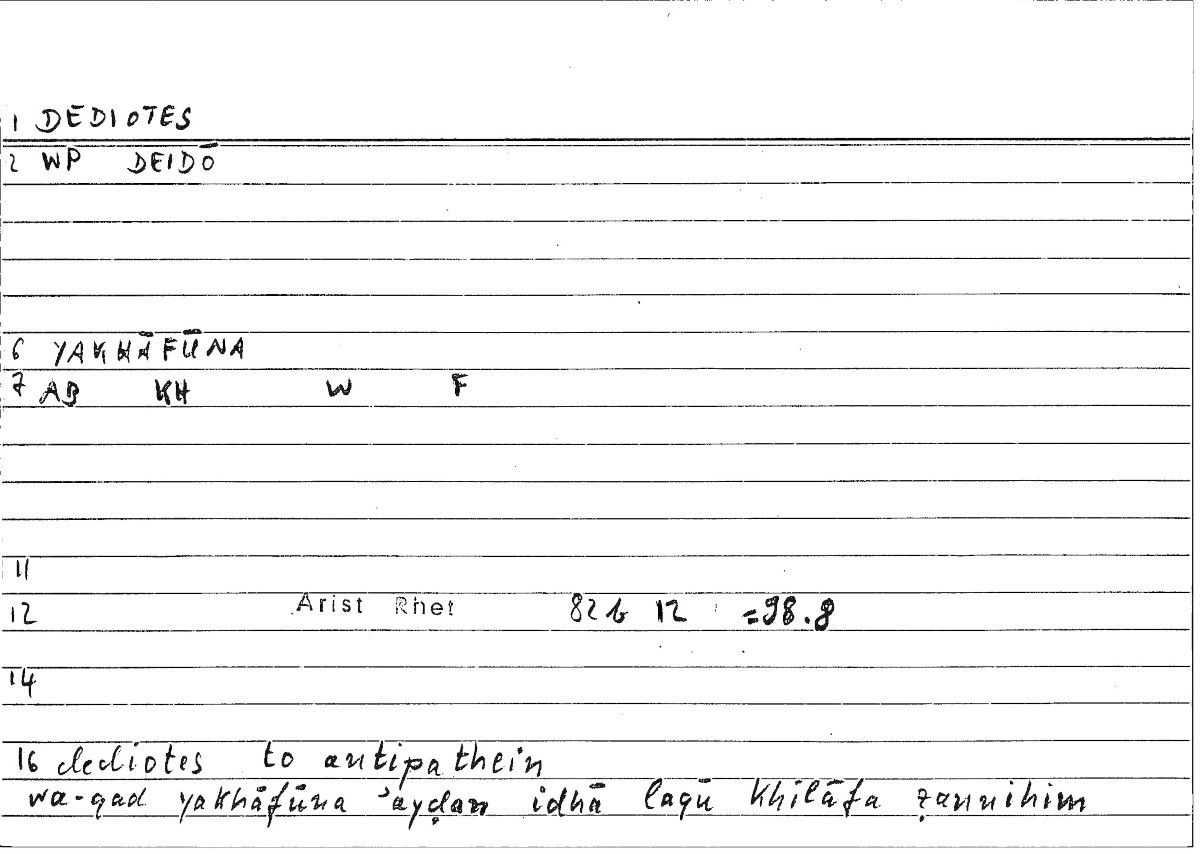 1 DEDIOTES
2 WP DEIDŌ
6 YAKHĀFŪNA
7 AB KH W F
11
12 Arist Rhet 82b 12 =98.8
14
16 dediotes to antipathein
wa-qad yakhāfūna ʾayḍan idhā laqū khilāfa ẓannihim